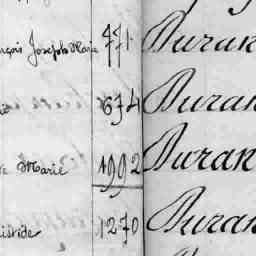 nçois Joseph Marie 471 Duran
674 Duran
Marie 1992 Duran
1270 Duran